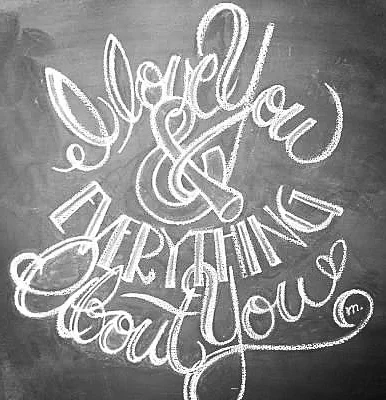 I love You
&
EVERYTHING
About You
m.